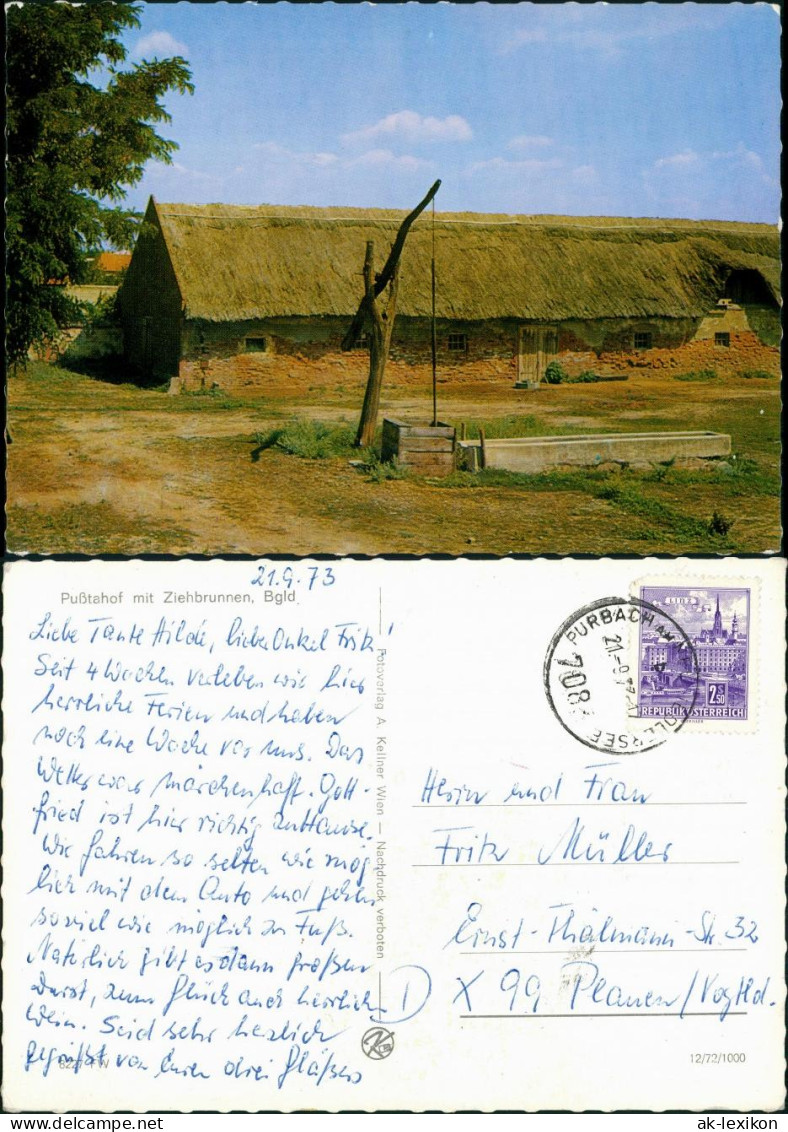 Pußtahof mit Ziehbrunnen, Bgld
21.9.73
Liebe Tante Hilde, liebe Onkel Fritz!
Seit 4 Wochen verleben wir hier
herrliche Ferien und haben
noch eine Woche vor uns. Das
Wetter war märchenhaft. Gott-
fried ist hier richtig zuhause.
Wir fahren so selten wie mög
lich mit dem Auto und gehen
soviel wie möglich zu Fuß.
Natürlich gibt es dann großen
Durst, zum Glück auch herrlichen
Wein. Seid sehr herzlich
gegrüßt von Euren drei Gläßers
6227 FW
Fotoverlag A. Kellner Wien — Nachdruck verboten
PURBACH AM NEUSIEDLERSEE
21.-9.73
7083
LINZ
2 S 50
REPUBLIK ÖSTERREICH
Herrn und Frau
Fritz Müller
Ernst-Thälmann-Str. 32
D X 99 Plauen/Vogtld.
12/72/1000
© ak-lexikon
www.ak-lexikon.de